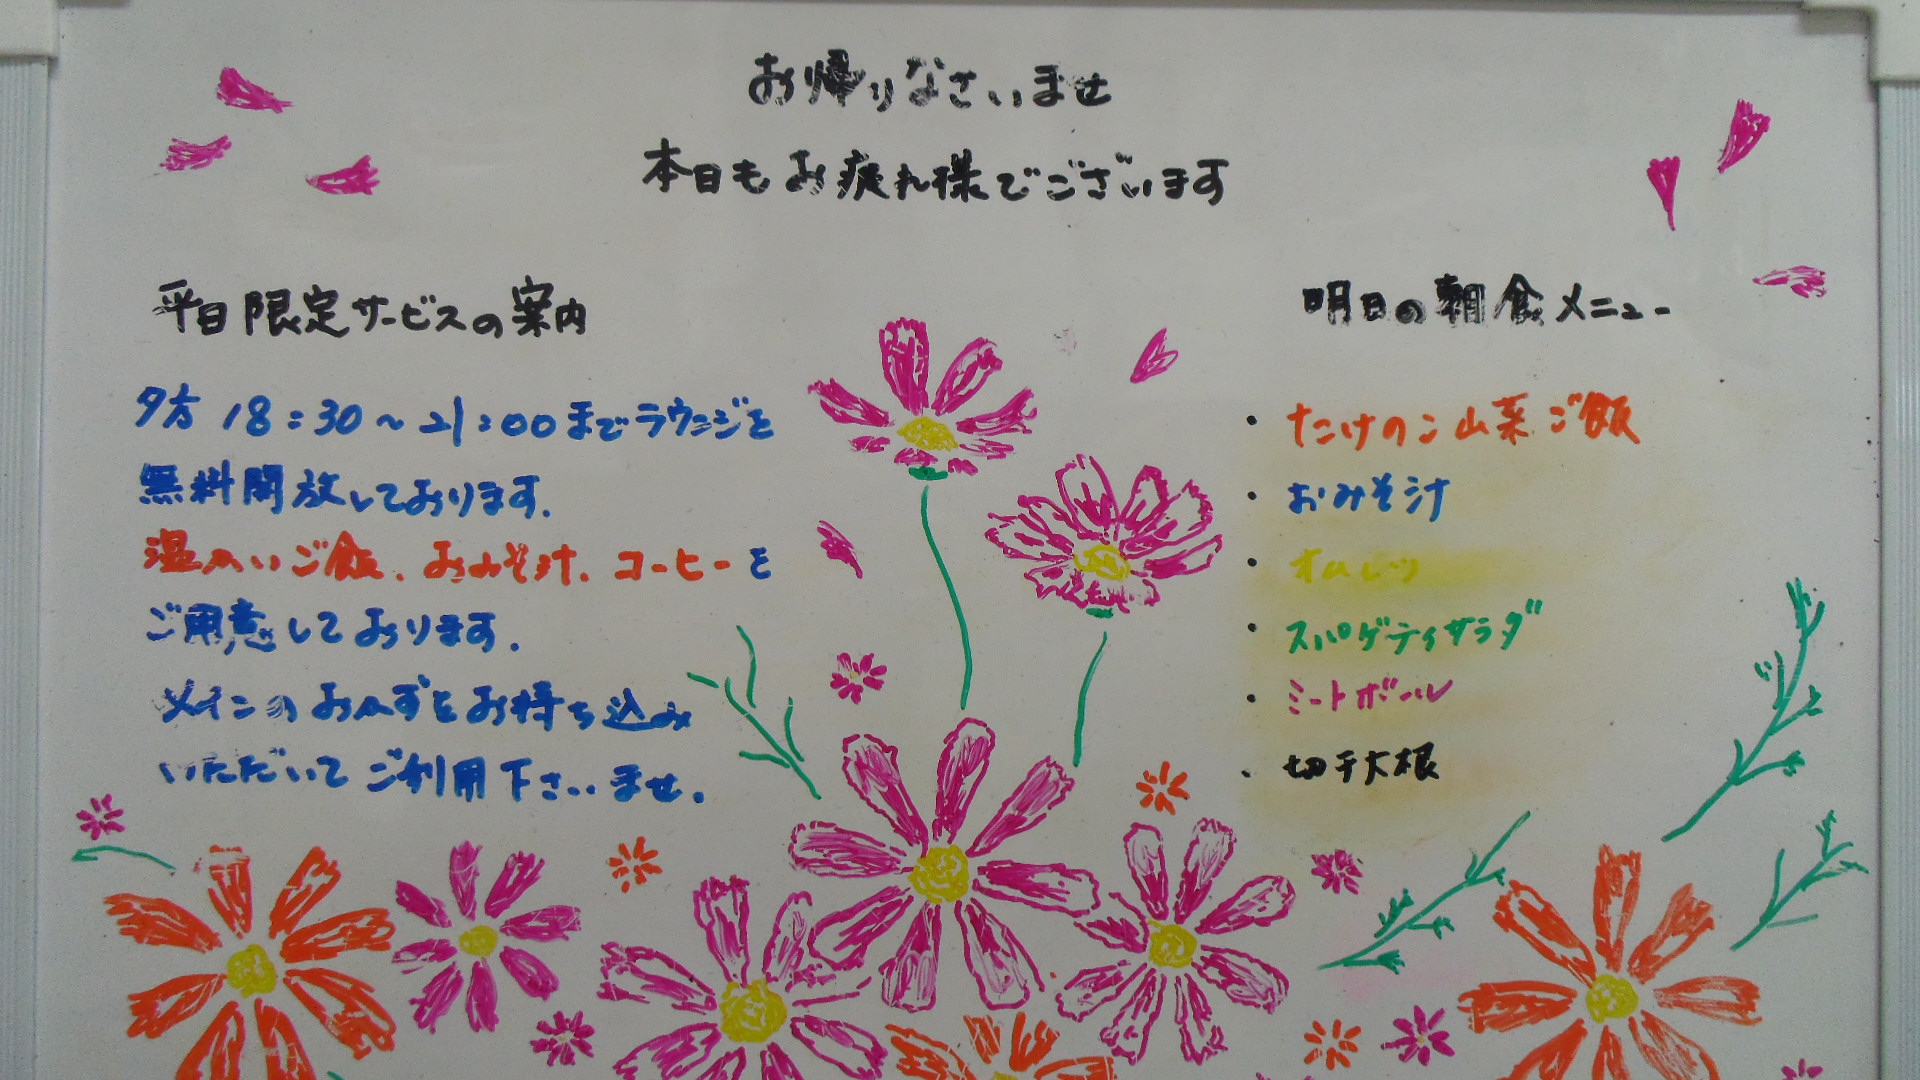 お帰りなさいませ
本日もお疲れ様でございます
平日限定サービスの案内
夕方 18:30～21:00までラウンジを
無料開放しております.
温かいご飯、おみそ汁、コーヒーを
ご用意しております.
メインのおかずをお持ち込み
いただいてご利用下さいませ.
明日の朝食メニュー
・たけのこ山菜ご飯
・おみそ汁
・オムレツ
・スパゲティサラダ
・ミートボール
・切干大根